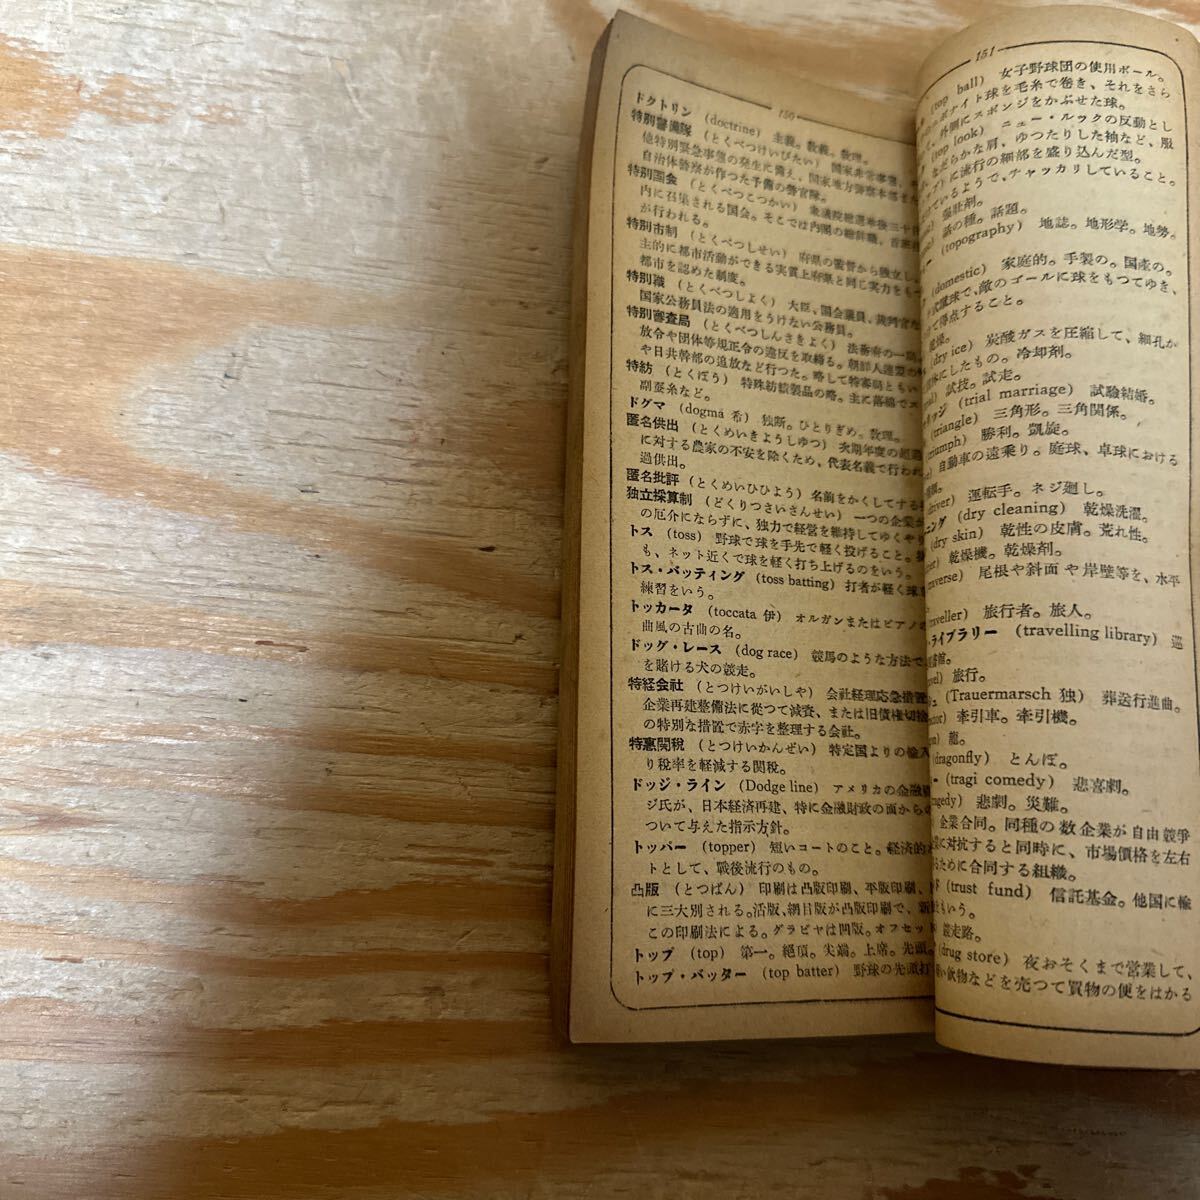 150
ドクトリン (doctrine) 主義。教義。教理。
特別警備隊 (とくべつけいびたい) 国家非常事態、
他特別緊急事態の発生に備え、国家地方警察本部
自治体警察が作つた予備の警官隊。
特別国会 (とくべつこつかい) 衆議院総選挙後三十日
内に召集される国会。そこでは内閣の総辞職、首班
が行われる。
特別市制 (とくべつしせい) 府県の監督から独立し、
主的に都市活動ができる実質上府県と同じ実力をも
都市を認めた制度。
特別職 (とくべつしよく) 大臣、国会議員、裁判官
国家公務員法の適用をうけない公務員。
特別審査局 (とくべつしんさきよく) 法務府の一局。
放令や団体等規正令の違反を取締る。朝鮮人連盟
や日共幹部の追放など行つた。略して特審局ともい
特紡 (とくぼう) 特殊紡績製品の略。主に落綿で
副蚕糸など。
ドグマ (dogma 希) 独断。ひとりぎめ。教理。
匿名供出 (とくめいきようしゆつ) 次期年度の超過
に対する農家の不安を除くため、代表名義で行わ
過供出。
匿名批評 (とくめいひひよう) 名前をかくしてする
独立採算制 (どくりつさいさんせい) 一つの企業が
の厄介にならずに、独力で経営を維持してゆくや
トス (toss) 野球で球を手先で軽く投げること。
も、ネット近くで球を軽く打ち上げるのをいう。
トス・バッティング (toss batting) 打者が軽く球を
練習をいう。
トッカータ (toccata 伊) オルガンまたはピアノ
曲風の古曲の名。
ドッグ・レース (dog race) 競馬のような方法で
を賭ける犬の競走。
特経会社 (とつけいがいしや) 会社経理応急措置
企業再建整備法に從つて減資、または旧債権切捨
の特別な措置で赤字を整理する会社。
特惠関税 (とつけいかんぜい) 特定国よりの輸入
り税率を軽減する関税。
ドッジ・ライン (Dodge line) アメリカの金融
ジ氏が、日本経済再建、特に金融財政の面から
ついて与えた指示方針。
トッパー (topper) 短いコートのこと。経済的
トとして、戰後流行のもの。
凸版 (とつばん) 印刷は凸版印刷、平版印刷、
に三大別される。活版、網目版が凸版印刷で、新
この印刷法による。グラビヤは凹版。オフセッ
トップ (top) 第一。絶頂。尖端。上席。先頭。
トップ・バッター (top batter) 野球の先頭打
151
(top ball) 女子野球団の使用ボール。
ボナイト球を毛糸で巻き、それをさら
外側にスポンジをかぶせた球。
(top look) ニュー・ルックの反動とし
なだらかな肩、ゆつたりした袖など、服
に流行の細部を盛り込んだ型。
けているようで、チャッカリしていること。
強壯剤。
話の種。話題。
(topography) 地誌。地形学。地勢。
(domestic) 家庭的。手製の。国産の。
式蹴球で、敵のゴールに球をもつてゆき、
て得点すること。
乾燥。
(dry ice) 炭酸ガスを圧縮して、細孔か
体にしたもの。冷却剤。
試技。試走。
リッジ (trial marriage) 試験結婚。
(triangle) 三角形。三角関係。
(triumph) 勝利。凱旋。
自動車の遠乗り。庭球、卓球における
(driver) 運転手。ネジ廻し。
ニング (dry cleaning) 乾燥洗濯。
(dry skin) 乾性の皮膚。荒れ性。
乾燥機。乾燥剤。
(traverse) 尾根や斜面や岸壁等を、水平
(traveller) 旅行者。旅人。
・ライブラリー (travelling library) 巡
書館。
旅行。
シュ (Trauermarsch 独) 葬送行進曲。
牽引車。牽引機。
龍。
(dragonfly) とんぼ。
ー (tragi comedy) 悲喜劇。
悲劇。災難。
企業合同。同種の数企業が自由競爭
に対抗すると同時に、市場價格を左右
るために合同する組織。
(trust fund) 信託基金。他国に輸
もいう。
競走路。
(drug store) 夜おそくまで営業して、
い飲物などを売つて買物の便をはかる